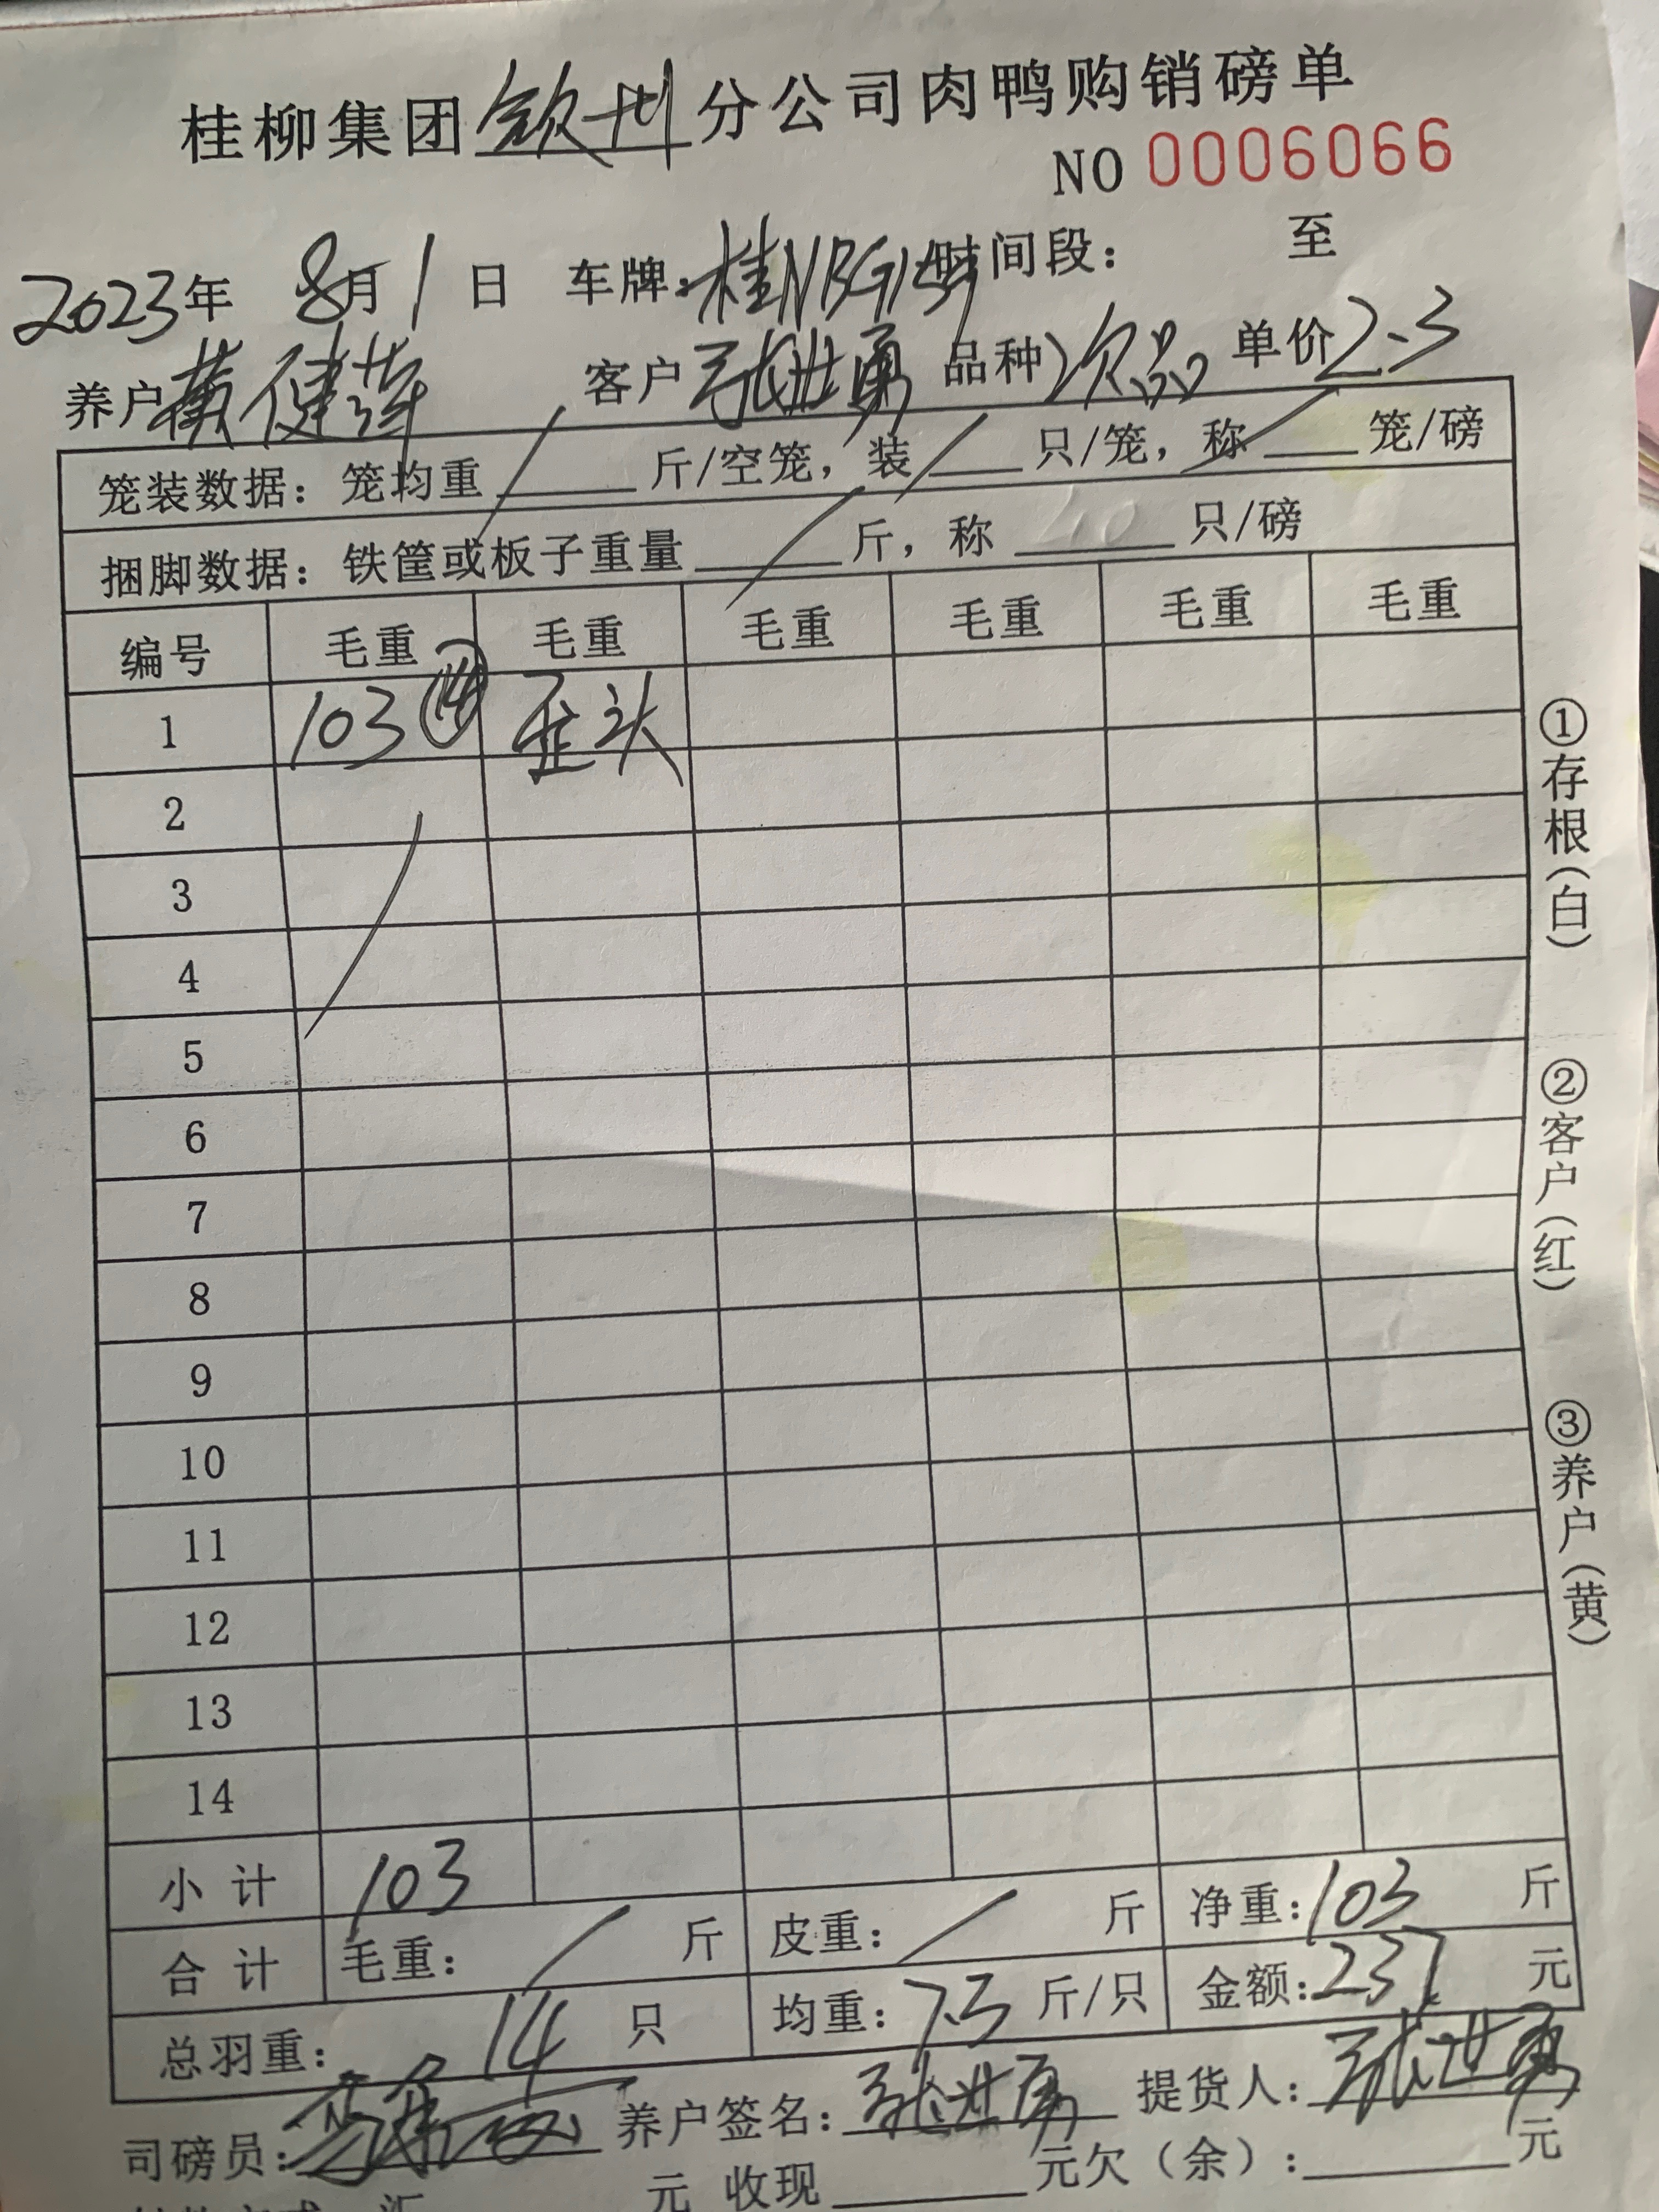 桂柳集团钦州分公司肉鸭购销磅单
NO 0006066
2023年 8月1日 车牌:桂NBG 时间段: 至
养户黄健萍 客户张世勇 品种次品 单价2.3
笼装数据: 笼均重 斤/空笼, 装 只/笼, 称 笼/磅
捆脚数据: 铁筐或板子重量 斤, 称 只/磅
编号 毛重 毛重 毛重 毛重 毛重 毛重
1 103 ⑭ 歪头
2
3
4
5
6
7
8
9
10
11
12
13
14
小计 103
合计 毛重: 斤 皮重: 斤 净重:103 斤
总羽重: 14 只 均重: 7.3 斤/只 金额:237 元
司磅员: 养户签名:张世勇 提货人:张世勇
元 收现 元欠(余): 元
①存根(白)
②客户(红)
③养户(黄)